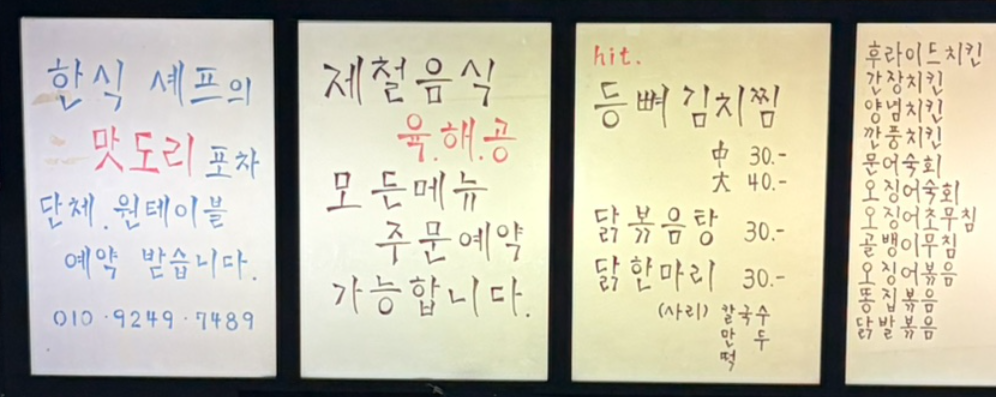 한식 셰프의
맛도리 포차
단체.원테이블
예약 받습니다.
010·9249·7489
제철음식
육.해.공
모든메뉴
주문예약
가능합니다.
hit.
등뼈김치찜
中 30.-
大 40.-
닭볶음탕 30.-
닭한마리 30.-
(사리) 칼국수
만두
떡
후라이드치킨
간장치킨
양념치킨
깐풍치킨
문어숙회
오징어숙회
오징어초무침
골뱅이무침
오징어볶음
똥집볶음
닭발볶음